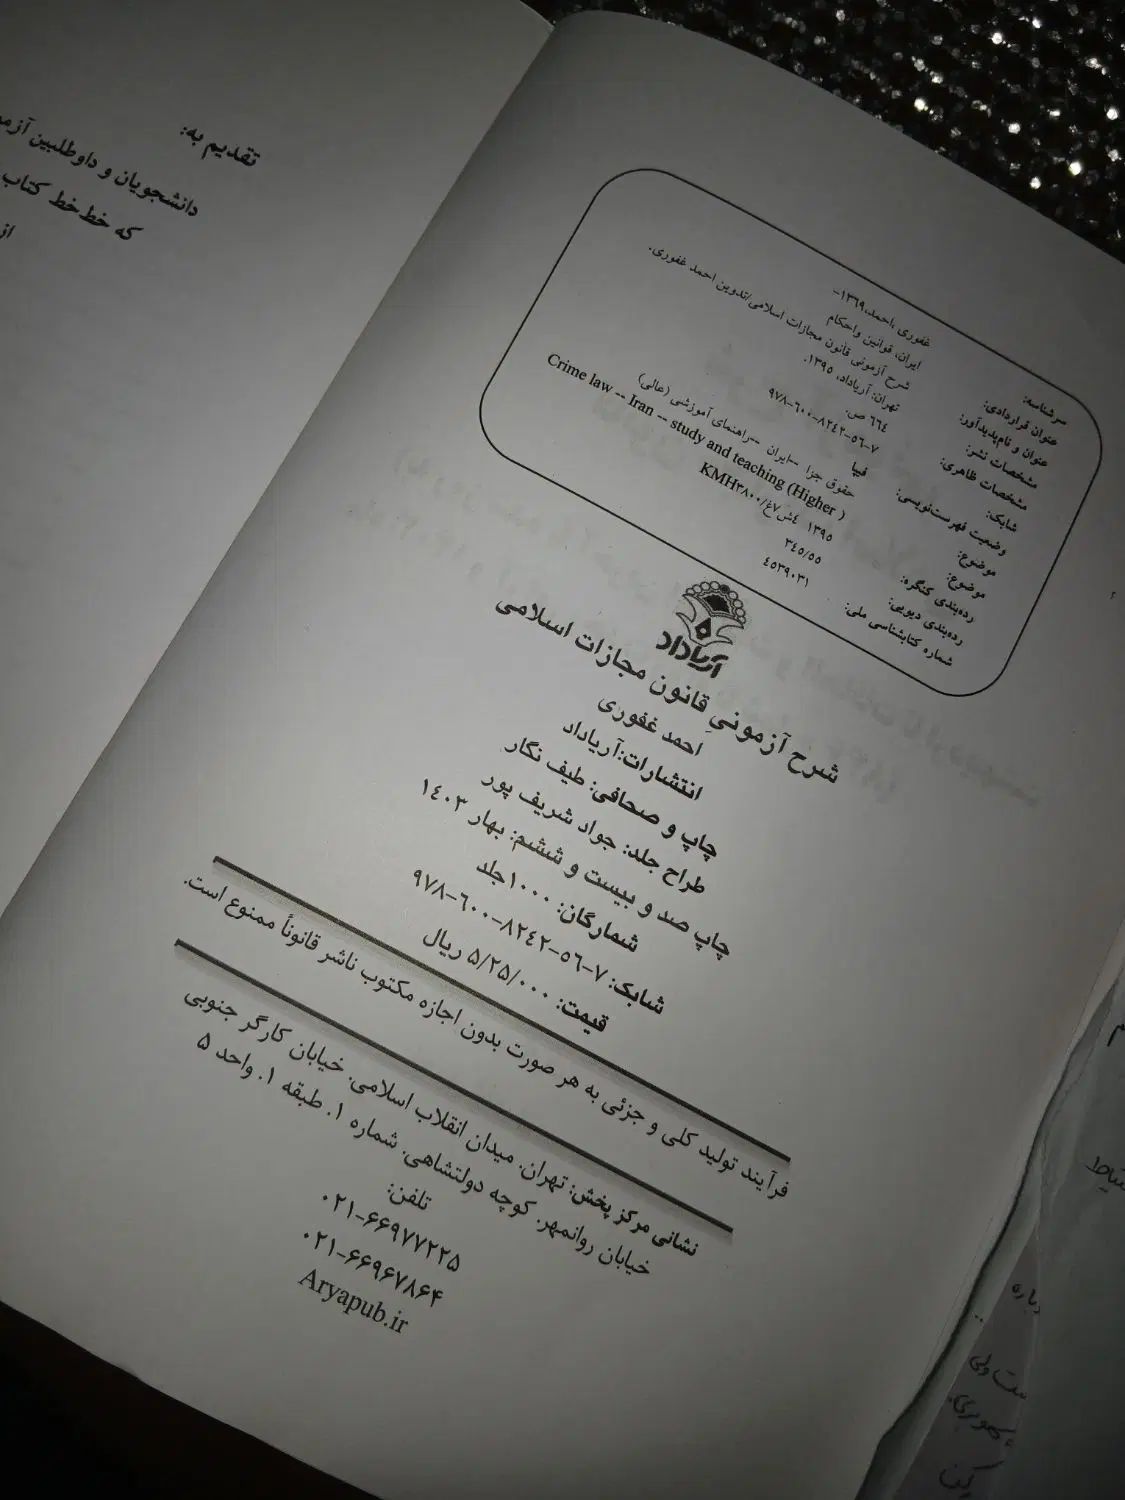 تقدیم به:
دانشجویان و داوطلبین
که خط‌خط کتاب
سرشناسه: غفوری ،احمد،۱۳۶۹-
عنوان قراردادی: ایران. قوانین واحکام
عنوان و نام‌پدیدآور: شرح آزمونی قانون مجازات اسلامی/تدوین احمد غفوری.
مشخصات نشر: تهران: آریاداد، ۱۳۹۵.
مشخصات ظاهری: ٦٦٤ ص.
شابک: ۹۷۸-٦۰۰-۸۲٤۲-٥٦-۷
وضعیت فهرست‌نویسی: فیپا
موضوع: حقوق جزا --ایران --راهنمای آموزشی (عالی)
موضوع: Crime law -- Iran -- study and teaching (Higher )
رده‌بندی کنگره: ۱۳۹٥ ٤ش۷غ/KMH۳۸۰۰
رده‌بندی دیویی: ۳٤٥/٥٥
شماره کتابشناسی ملی: ٤٥۳۹۰۳۱
آریاداد
شرح آزمونیِ قانون مجازات اسلامی
احمد غفوری
انتشارات:آریاداد
چاپ و صحافی: طیف نگار
طراح جلد: جواد شریف پور
چاپ صد و بیست و ششم: بهار ۱٤۰۳
شمارگان: ۱۰۰۰جلد
شابک: ۹۷۸-٦۰۰-۸۲٤۲-٥٦-۷
قیمت: ۵/۲۵/۰۰۰ ریال
فرآیند تولید کلی و جزئی به هر صورت بدون اجازه مکتوب ناشر قانوناً ممنوع است.
نشانی مرکز پخش: تهران. میدان انقلاب اسلامی. خیابان کارگر جنوبی
خیابان روانمهر. کوچه دولتشاهی. شماره ۱. طبقه ۱. واحد ۵
تلفن:
۰۲۱-۶۶۹۷۷۲۲۵
۰۲۱-۶۶۹۶۷۸۶۴
Aryapub.ir